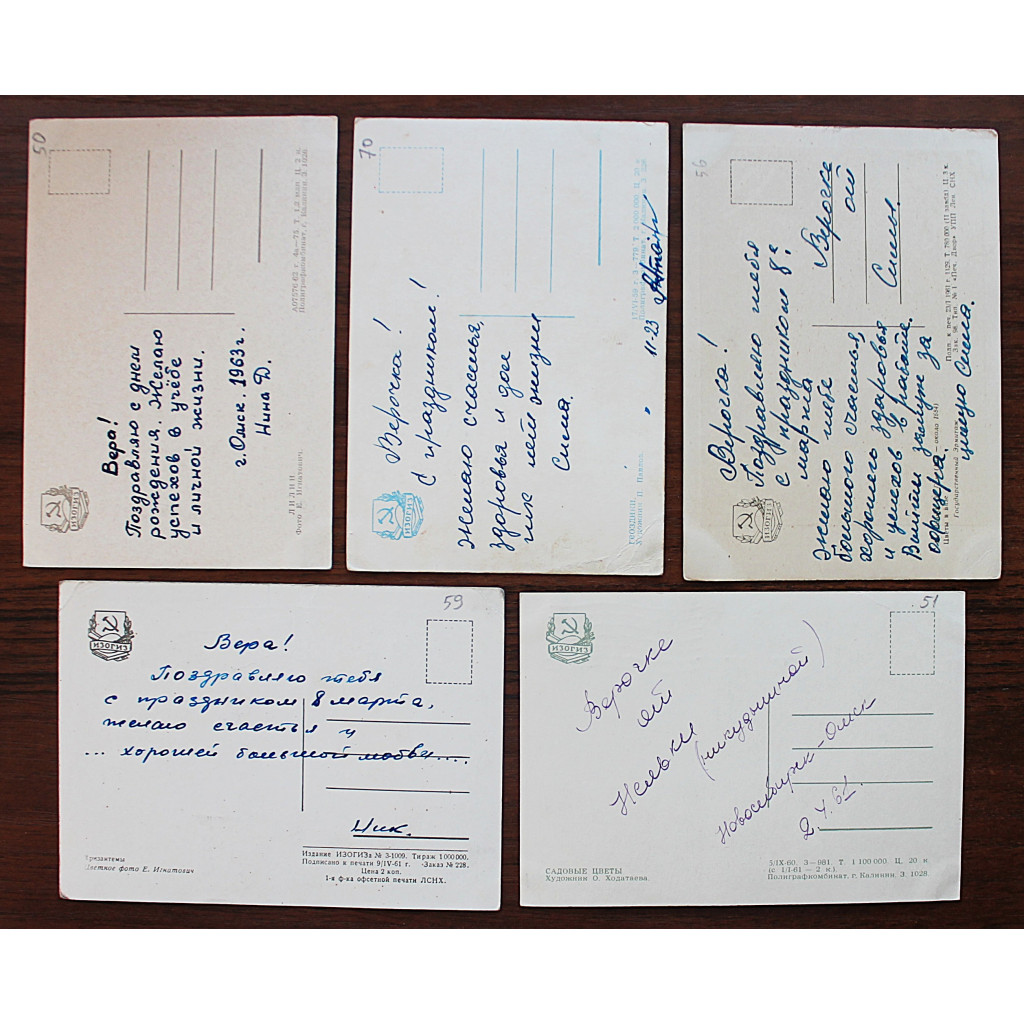 50
Вера!
Поздравляю с днем
рождения. Желаю
успехов в учёбе
и личной жизни.
г. Омск. 1963г.
Нина Д.
ИЗОГИЗ
ЛИЛИИ
Фото Е. Игнатович.
А07576 62 г.
Полиграфкомбинат, г. Калинин З. 1026
70
Верочка!
С праздником!
Желаю счастья,
здоровья и долг
лет жизни
Сима.
11-23
ИЗОГИЗ
ГВОЗДИКИ.
Художник П.
56
Верочке
от
Симы.
Верочка!
Поздравляю тебя
с праздником 8е
марта
Желаю тебе
большого счастья,
хорошего здоровья
и успехов в работе.
Выйти замуж за
офицера.
целую Сима.
ИЗОГИЗ
Цветы в вазе
Государственный Эрмитаж
Подп. к печ. 23/I 1961 г.
Зак. 98. Тип. № 1 «Печ. Двор» УПП Лен СНХ
59
ИЗОГИЗ
Вера!
Поздравляю тебя
с праздником 8 марта,
желаю счастья и
... хорошей большой любви....
Ник.
Хризантемы
Цветное фото Е. Игнатович
Издание ИЗОГИЗа № 3-1009. Тираж 1 000 000.
Подписано к печати 9/IV-61 г. Заказ № 228.
Цена 2 коп.
1-я ф-ка офсетной печати ЛСНХ.
51
ИЗОГИЗ
Верочке
от
Нельки
Новосибирск-Омск
САДОВЫЕ ЦВЕТЫ
Художник О. Ходатаева.
5/IX-60. 3-881. Т. 1 100 000. Ц. 20 к.
(с 1/I-61 — 2 к.)
Полиграфкомбинат, г. Калинин, З. 1028.